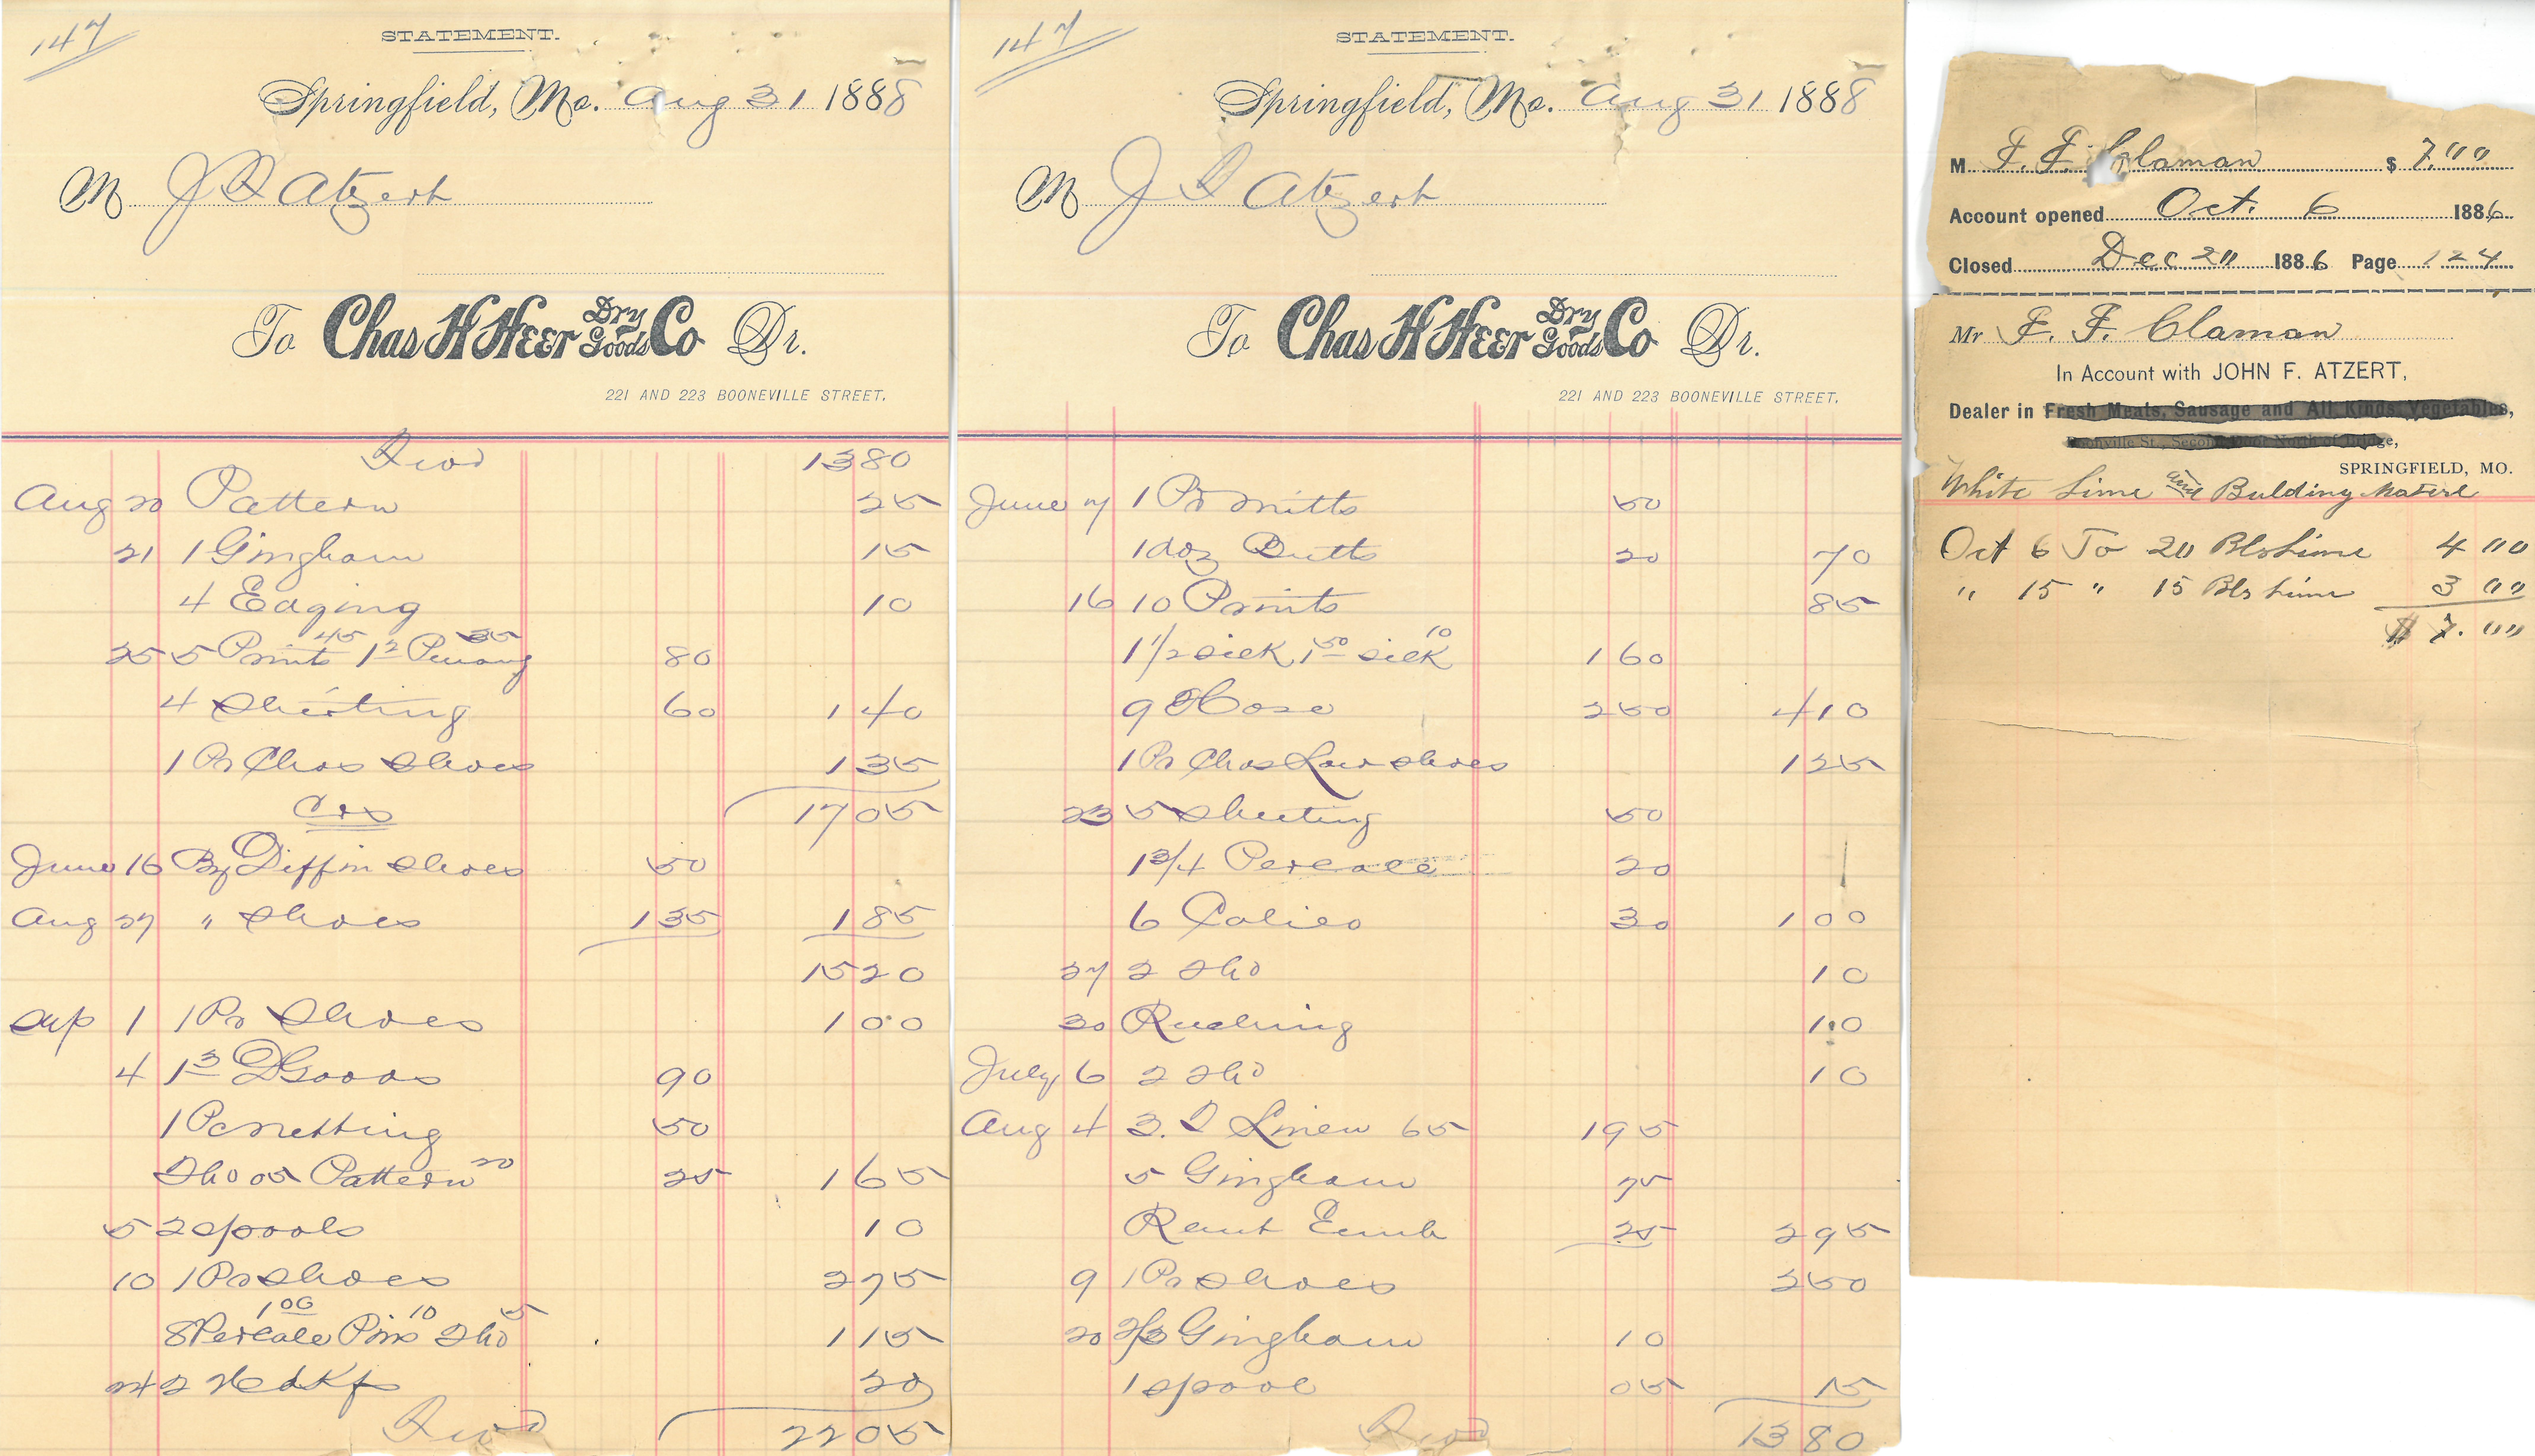 147
STATEMENT.
Springfield, Mo. Aug 31 1888
M J F Atzert
To Chas H Heer Dry Goods Co Dr.
221 AND 223 BOONEVILLE STREET.
Fwd 1380
Aug 20 Pattern 25
21 1 Gingham 15
4 Edging 10
25 5 Prints 45 1 2 Penang 35 80
4 Shirting 60 1 40
1 Pr Chas Shoes 1 35
Crs 17 05
June 16 By Diff in Shoes 50
Aug 27 " Shoes 1 35 1 85
15 20
Sep 1 1 Pr Shoes 1 00
4 1 3 D Goods 90
1 Pc netting 50
Tho 05 Pattern 20 25 1 65
5 2 spools 10
10 1 Pr Shoes 2 75
8 Percale 1 00 Pins 10 Tho 5 1 15
24 2 Hedkfs 20
Fwd 22 05
147
STATEMENT.
Springfield, Mo. Aug 31 1888
M J F Atzert
To Chas H Heer Dry Goods Co Dr.
221 AND 223 BOONEVILLE STREET.
June 7 1 Pr mitts 50
1 doz Butts 20 70
16 10 Prints 85
1 1/2 silk 1 50 silk 10 1 60
9 Hose 2 50 4 10
1 Pr Chas Low shoes 1 25
23 5 Sheeting 50
1 3/4 Percale 20
6 Calico 30 1 00
27 2 Tho 10
30 Ruching 10
July 6 2 Tho 10
Aug 4 3. T Linen 65 1 95
5 Gingham 75
Remt Emb 25 2 95
9 1 Pr Shoes 2 50
20 2/3 Gingham 10
1 spool 05 15
Fwd 13 80
M F. F. Claman $ 7.00
Account opened Oct. 6 1886
Closed Dec 20 1886 Page 124
Mr F. F. Claman
In Account with JOHN F. ATZERT,
Dealer in Fresh Meats, Sausage and All Kinds Vegetables,
Boonville St., Second Door North of Bridge,
SPRINGFIELD, MO.
White Lime and Bulding Materl
Oct 6 To 20 Bls Lime 4 00
" 15 " 15 Bls Lime 3 00
$ 7.00